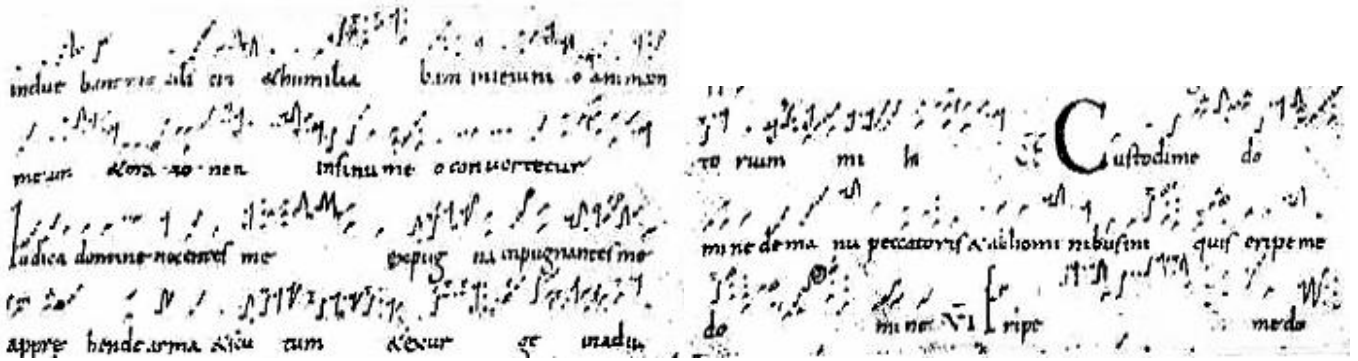 induebam me cili cio & humilia bam in ieiuni o animam
meam & ora tio nea in sinu me o convertetur
Iudica domine nocentes me expug na inpugnantes me
appre hende arma & scu tum & exur ge in adiu
to rium mi hi Custodi me do
mine de ma nu peccatoris & ab homi nibus ini quis eripe me
do mine VI Eripe me do